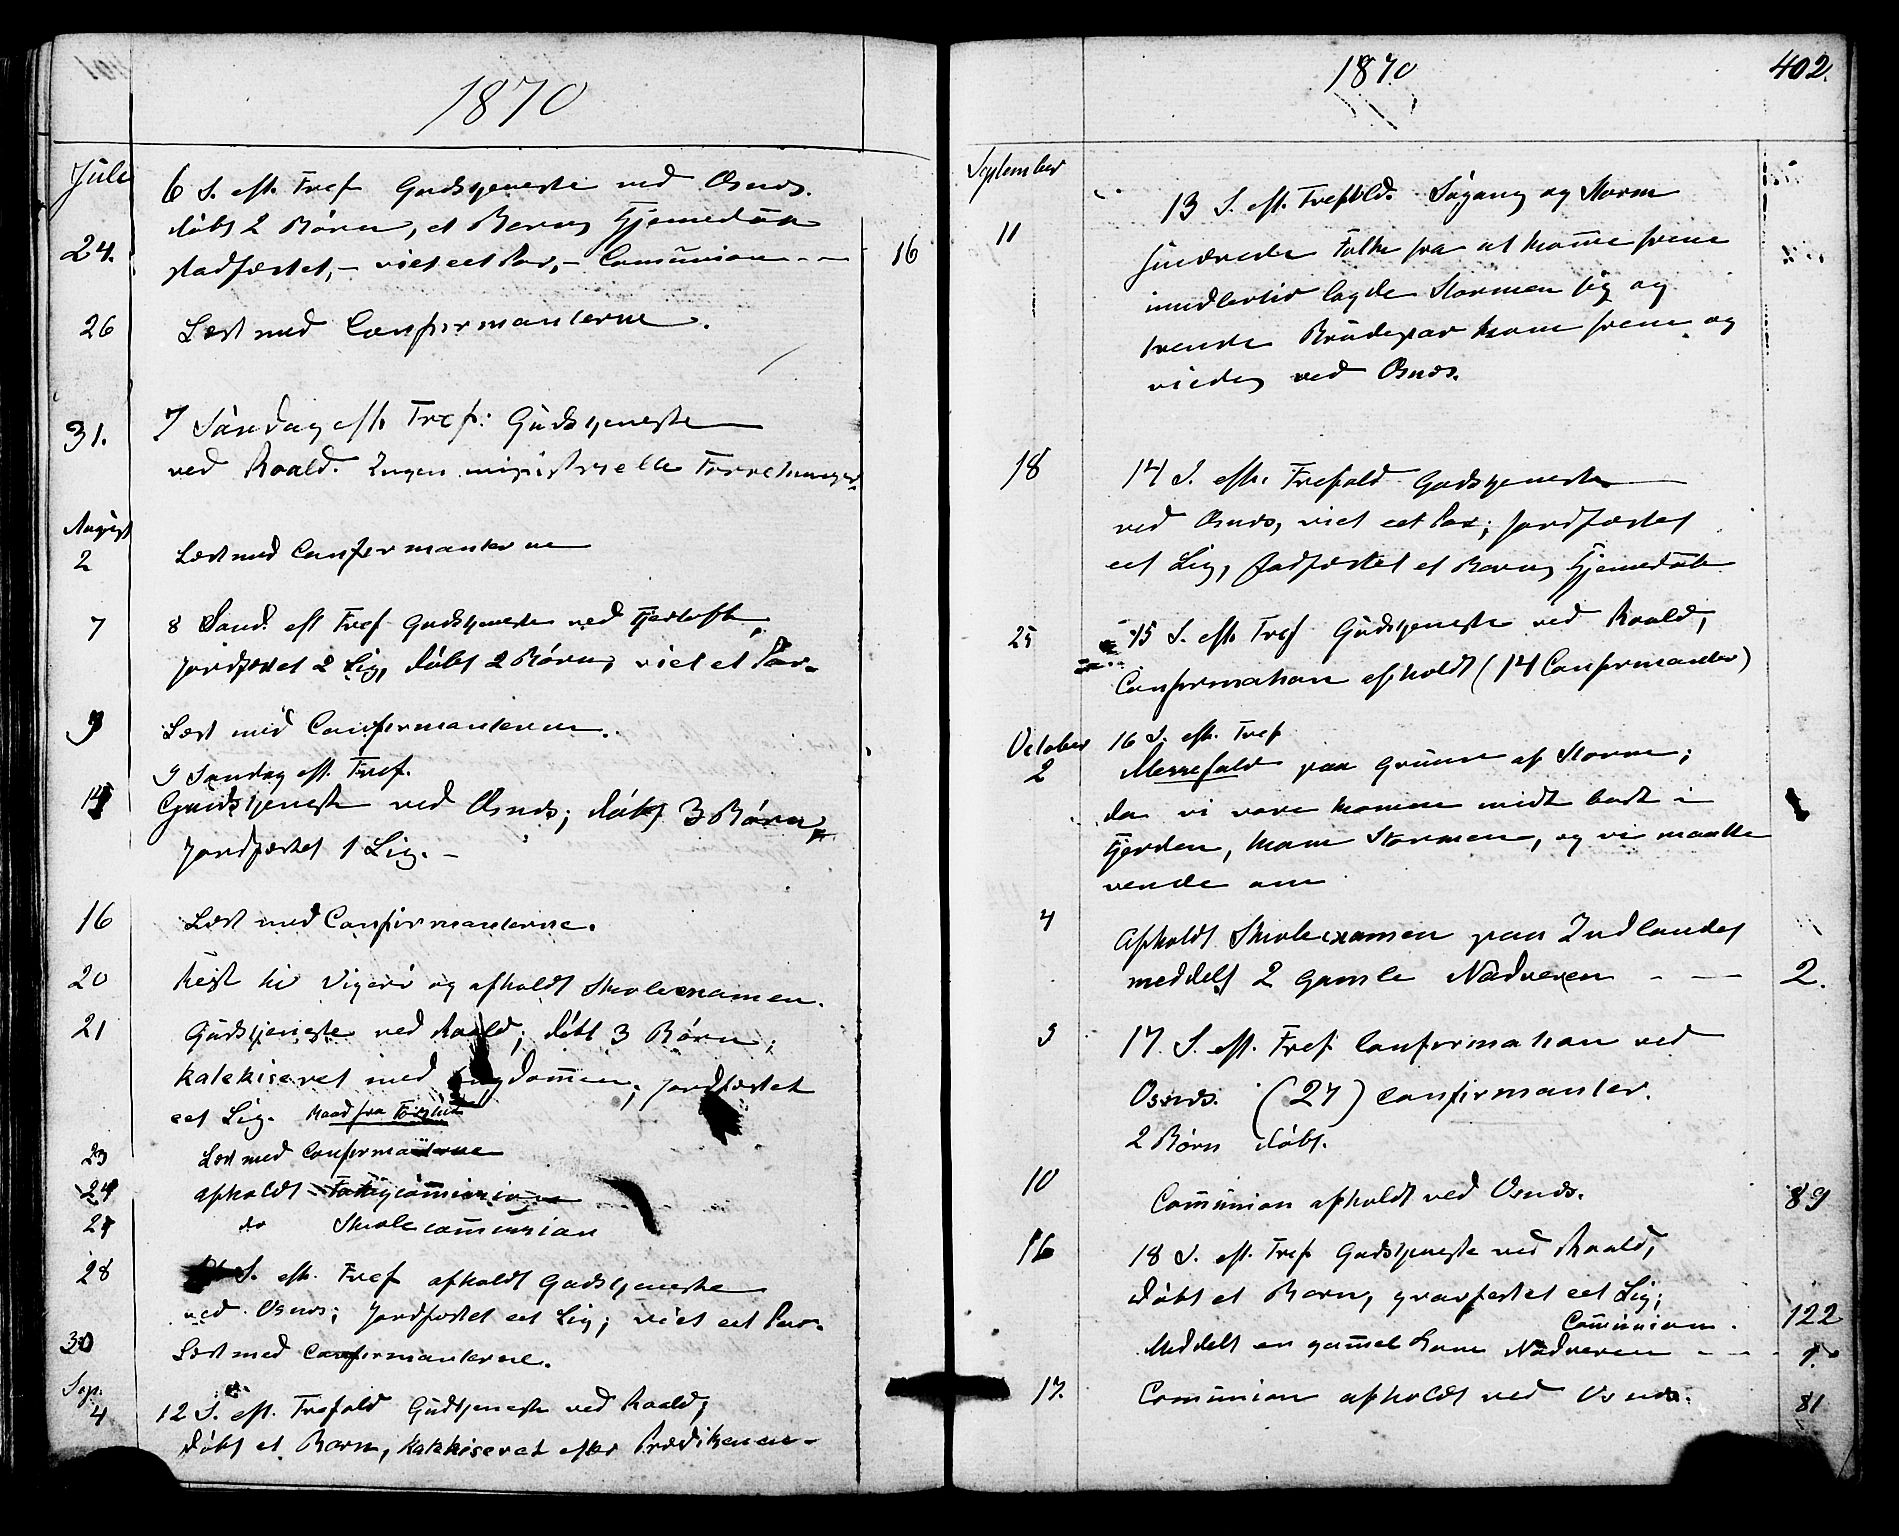 1870
Juli
6 S. eft. Tref Gudstjeneste ved Osnæs.
24. døbt 2 Børn, et Barns Hjemedåb
stadfæstet, - viet eet Par, - Comunion - - 16
26 Læst med Confirmanterne.
31. 7 Søndag eft. Tref: Gudstjeneste
ved Roald. Ingen ministrielle Forretninger.
August
2 Læst med Confirmanterne
7 8 Sønd. eft Tref Gudstjeneste ved Fjærtoft,
jordfæstet 2 Lig, døbt 2 Børn, viet et Par.
9 Læst med Confirmanterne.
9 Søndag eft. Tref.
14 Gudstjeneste ved Osnæs; døbt 3 Børn,
Jordfæstet 1 Lig. -
16 Læst med Confirmanterne.
20 Reist til Vigerø og afholdt Skoleexamen.
21 Gudstjeneste ved Roald; døbt 3 Børn;
katekiseret med Ungdommen; jordfæstet
eet Lig. Maad fra
23 Læst med Confirmanterne
24 afholdt Fattigcommission
24 do Skolecommission
28 S. eft. Tref afholdt Gudstjeneste
ved Osnæs; Jordfæstet eet Lig; viet eet Par.
30 Læst med Confirmanterne.
Sep.
4 12 S. eft. Trefold Gudtjeneste ved Roald;
døbt et Barn, katekiseret efter Prædikenen -
1870 402.
September
11 13 S. eft. Trefold. Søgang og Storm
hindrede Folk fra at komme frem
imidlertid lagde Stormen sig og
trende Brudepar kom frem og
viedes ved Osnæs.
18 14 S. eft. Trefold Gudstjeneste
ved Osnæs, viet eet Par; jordfæstet
eet Lig, stadfæstet et Barns Hjemedåb
25 15 S. eft. Tref Gudstjeneste ved Roald,
Confirmation afholdt (14 Confirmanter)
October 16 S. eft. Tref
2 Messefald paa Grund af Storm;
da vi vare komne midt bort i
Fjorden, kom Stormen, og vi maatte
vende om
4 Afholdt Skoleexamen paa Indlandet
meddelt 2 gamle Nadveren - - - 2.
9 17 S. eft. Tref Confirmation ved
Osnæs. (27) Confirmanter.
2 Børn døbt.
10 Communion afholdt ved Osnæs. 89
16 18 S. eft. Tref Gudstjeneste ved Roald,
døbt et Barn, gravfæstet eet Lig;
Communion. 122
Meddelt en gammel Kone Nadveren - - - 1.
17. Communion afholdt ved Osnæs. 81